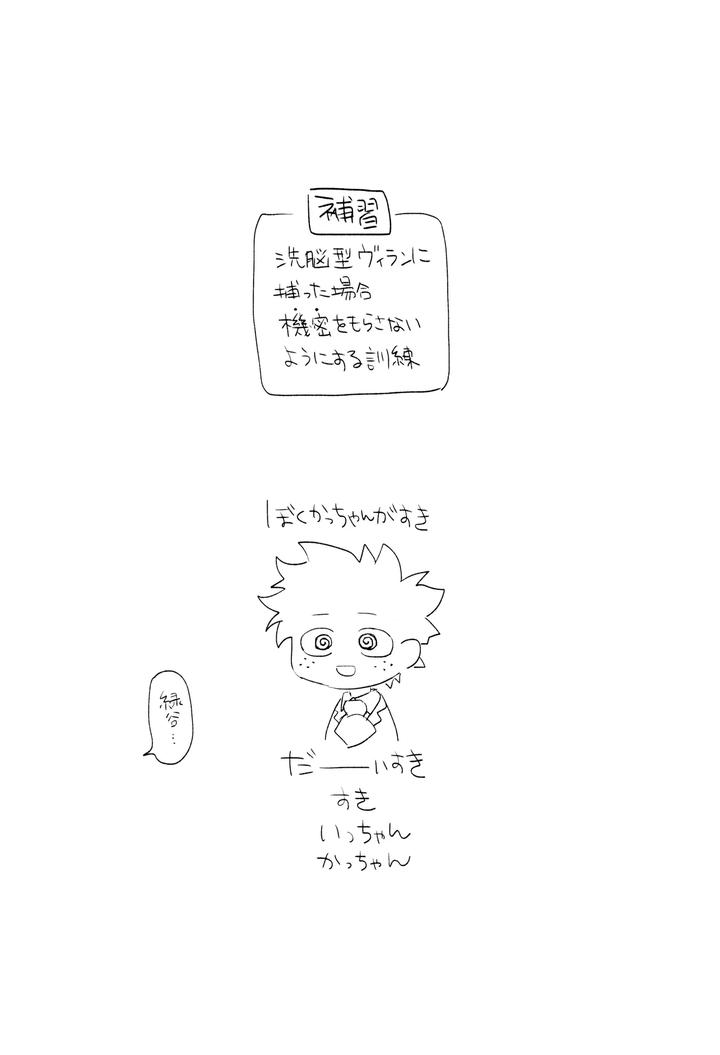 補習
洗脳型ヴィランに
捕った場合
機密をもらさない
ようにする訓練
ぼくかっちゃんがすき
緑谷…
だーいすき
すき
いっちゃん
かっちゃん